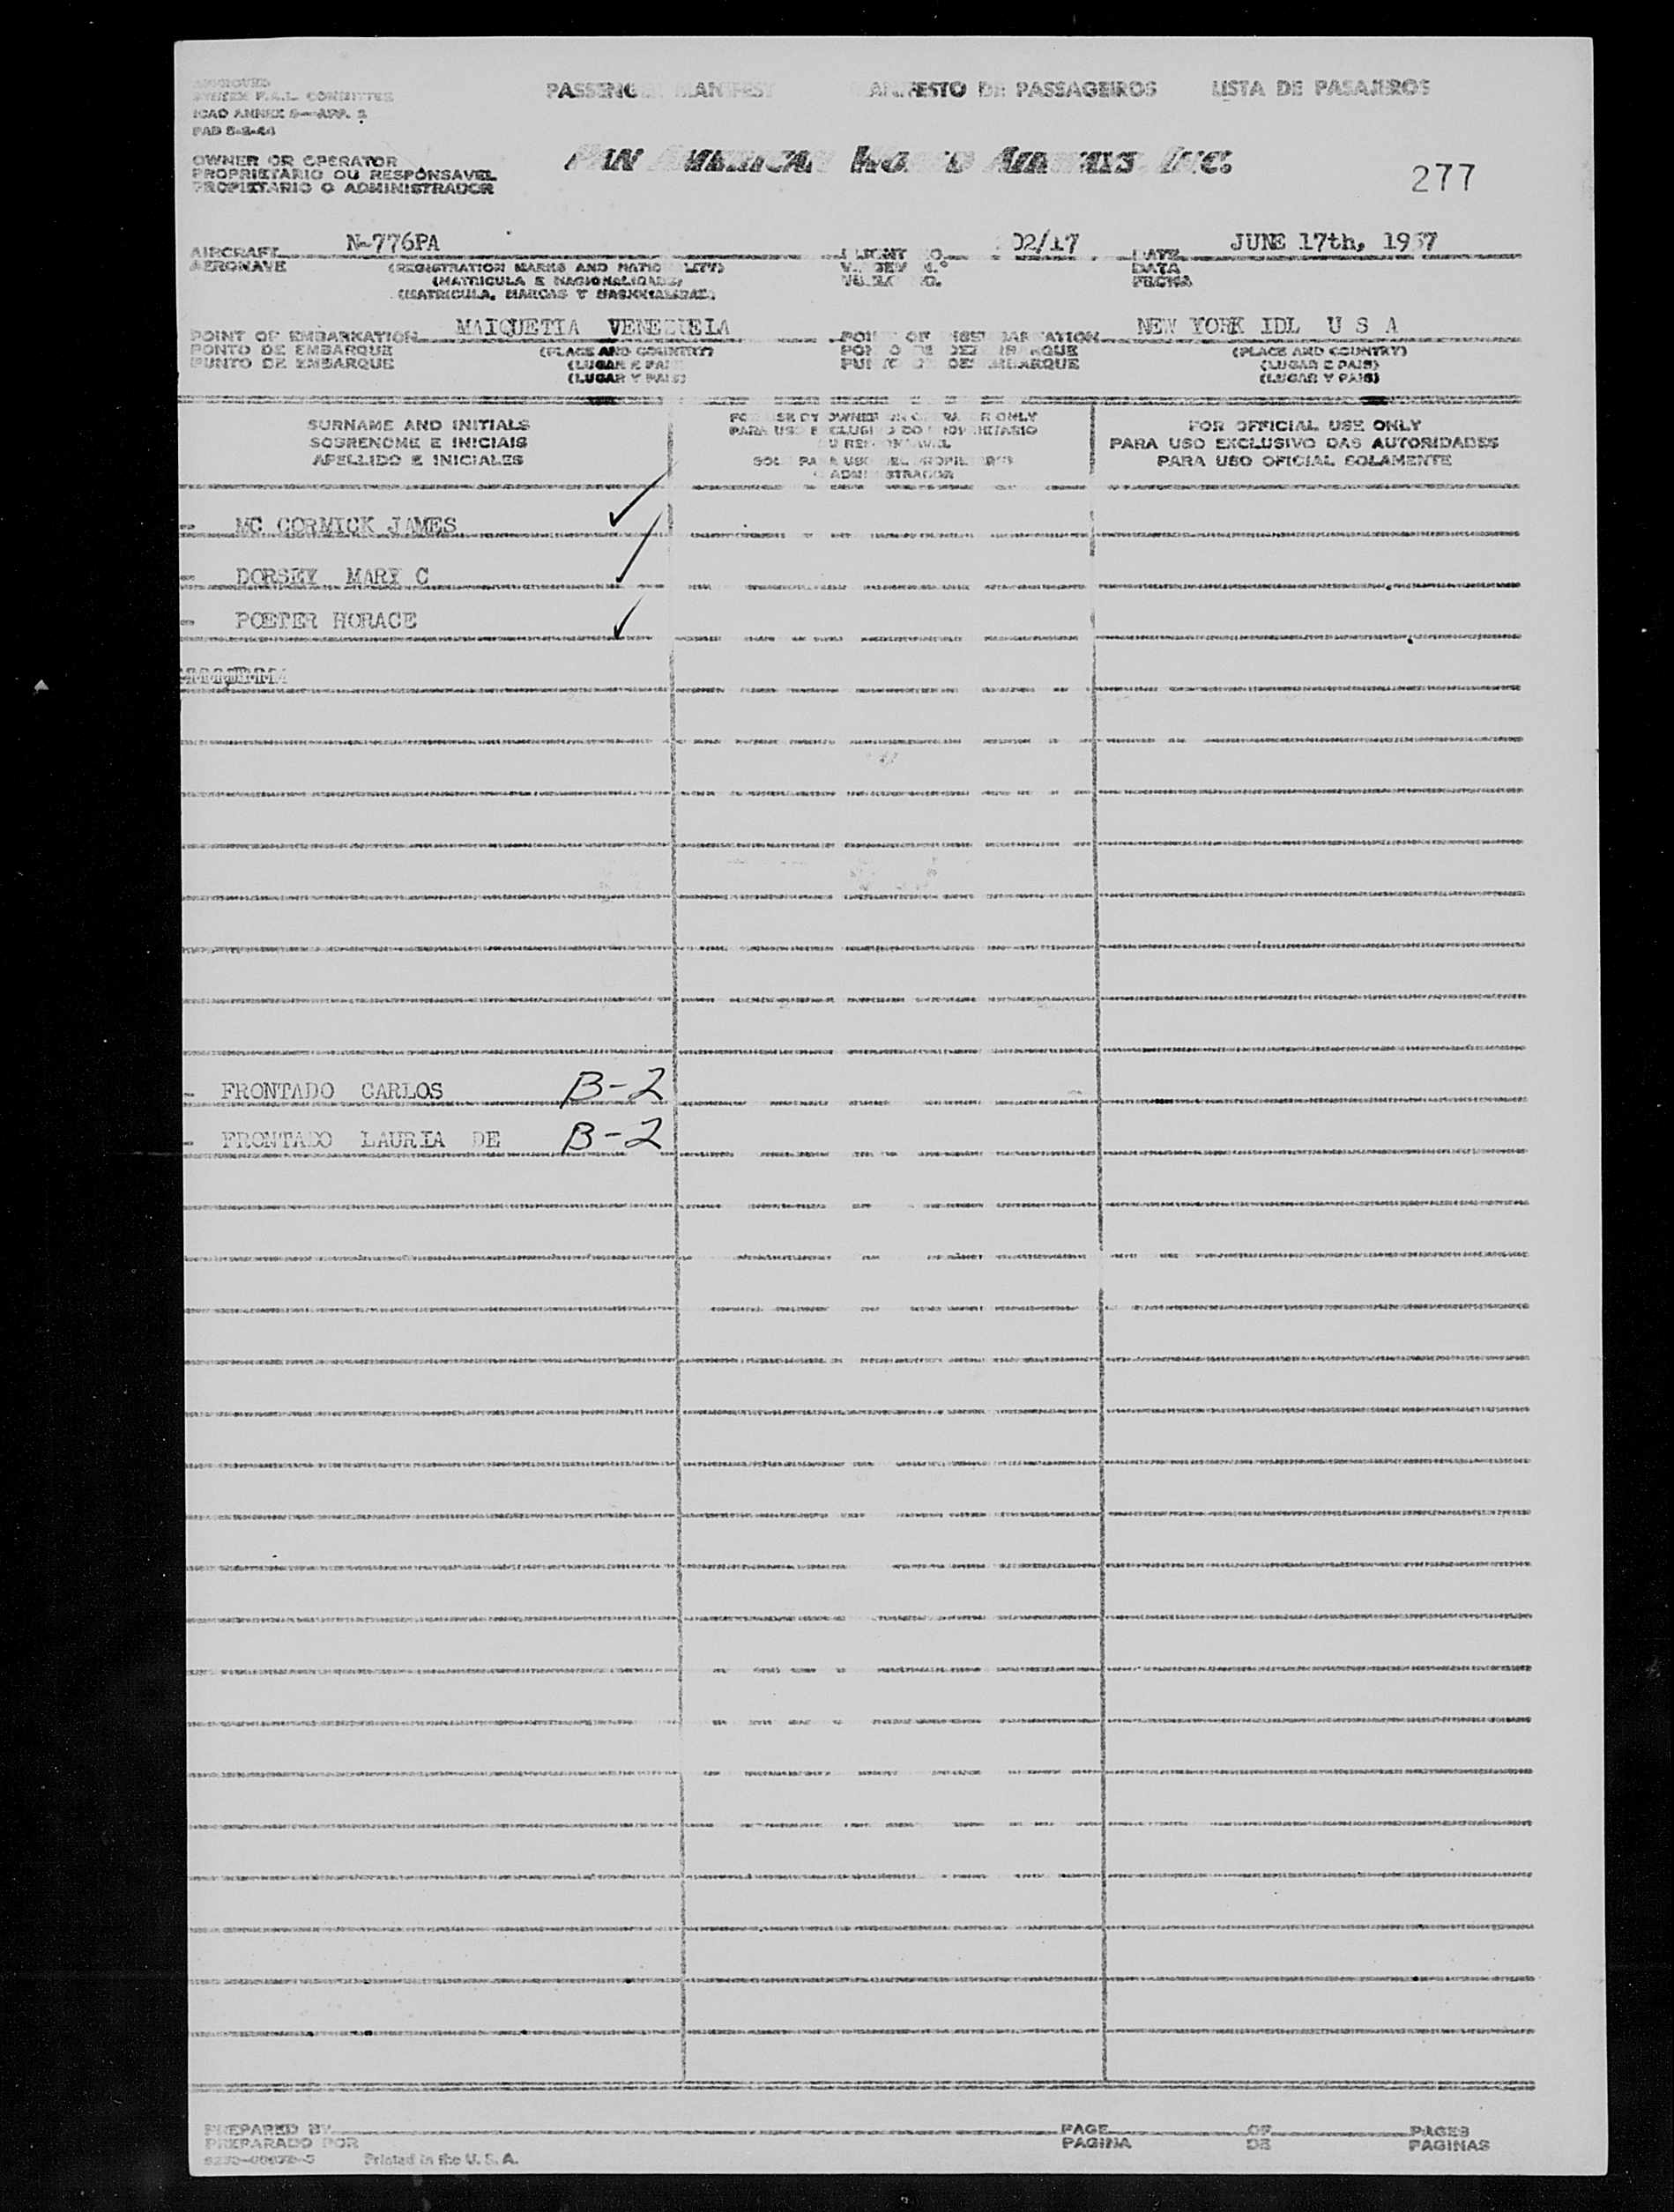 APPROVED
SYSTEM F.A.L. COMMITTEE
ICAO ANNEX 9—APP. 2
PAD 8-2-44
PASSENGER MANIFEST MANIFESTO DE PASSAGEIROS LISTA DE PASAJEROS
OWNER OR OPERATOR
PROPRIETARIO OU RESPONSAVEL
PROPIETARIO O ADMINISTRADOR
PAN AMERICAN WORLD AIRWAYS INC.
277
AIRCRAFT N-776PA FLIGHT NO. 02/17 DATE JUNE 17th, 1957
AERONAVE (REGISTRATION MARKS AND NATIONALITY) DATA
(MATRICULA E NACIONALIDADE) FECHA
(MATRICULA, MARCAS Y NACIONALIDAD)
POINT OF EMBARKATION MAIQUETIA VENEZUELA POINT OF DISEMBARKATION NEW YORK IDL U S A
PONTO DE EMBARQUE (PLACE AND COUNTRY) PONTO DE DESEMBARQUE (PLACE AND COUNTRY)
PUNTO DE EMBARQUE (LUGAR E PAIS) PUNTO DE DESEMBARQUE (LUGAR E PAIS)
(LUGAR Y PAIS) (LUGAR Y PAIS)
SURNAME AND INITIALS
SOBRENOME E INICIAIS
APELLIDO E INICIALES
FOR USE BY OWNER OR OPERATOR ONLY
PARA USO EXCLUSIVO DO PROPRIETARIO
OU RESPONSAVEL
SOLO PARA USO DEL PROPIETARIO
O ADMINISTRADOR
FOR OFFICIAL USE ONLY
PARA USO EXCLUSIVO DAS AUTORIDADES
PARA USO OFICIAL SOLAMENTE
- MC CORMICK JAMES
- DORSEY MARY C
- PORTER HORACE
- FRONTADO CARLOS B-2
- FRONTADO LAURIA DE B-2
PREPARED BY PAGE OF PAGES
PREPARADO POR PAGINA DE PAGINAS
Printed in the U. S. A.